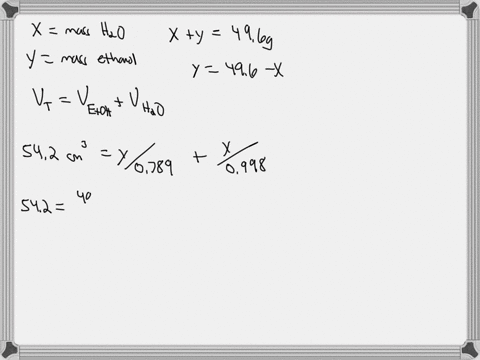 X = mass H₂O
x + y = 49.6g
Y = mass ethanol
y = 49.6 - x
V_T = V_EtOH + V_H₂O
54.2 cm³ = y/0.789 + x/0.998
54.2 = 49